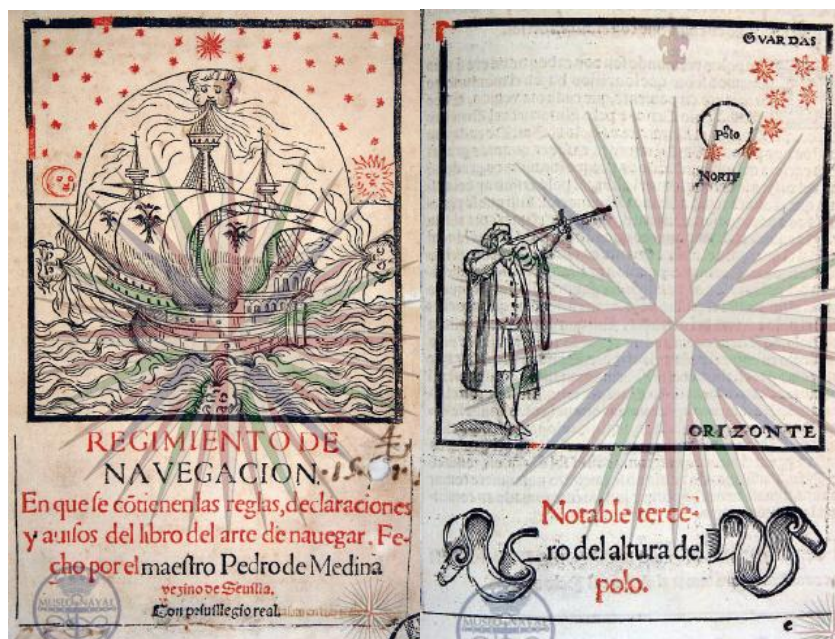 REGIMIENTO DE
NAVEGACION.
En que se cõtienen las reglas, declaraciones
y auisos del libro del arte de nauegar. Fe-
cho por el maestro Pedro de Medina
vezino de Seuilla.
Con preuillegio real.
MUSEO NAVAL
GVARDAS
polo
NORTE
ORIZONTE
Notable terce-
ro del altura del
polo.
e
MUSEO NAVAL